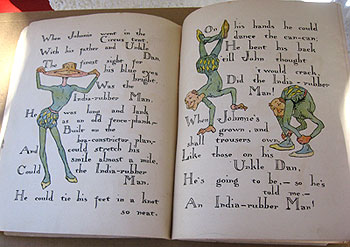 When Johnnie went in the
Circus tent,
With his father and Unkle
Dan,
The finest sight for
his blue eyes
bright,
Was the
India-rubber
Man.
He was long and lank
as an old fence-plank,
Built on the
boa-constrictor plan;
And he could stretch his
smile almost a mile,
Could the India-rubber
Man.
He could tie his feet in a knot
so neat,
On his hands he could
dance the can-can;
He bent his back
till John thought
't would crack,
Did the India-rubber
Man!
When Johnnie's
grown, and
shall trousers own
Like those on his
Unkle Dan,
He's going to be,— so he's
told me,—
An India-rubber Man!